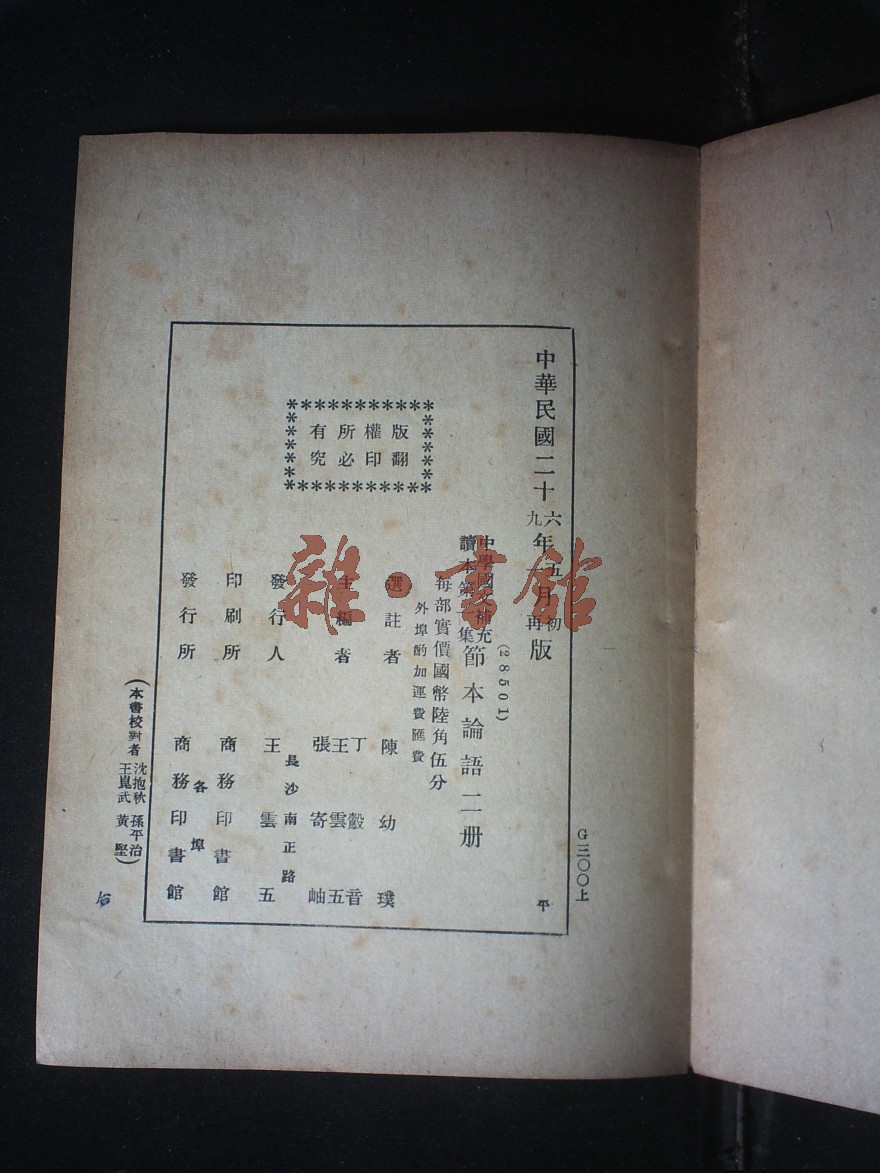 G三〇〇上
中華民國二十六年五月初版
九年一月再版
平
(28501)
中學國文補充
讀本第一集
節本論語二册
每部實價國幣陸角伍分
外埠酌加運費匯費
版權所有
翻印必究
選註者 陳幼璞
主編者 丁䉤音
王雲五
張寄岫
發行人 王雲五
長沙南正路
印刷所 商務印書館
發行所 商務印書館
各埠
(本書校對者 沈抱秋 孫平治
王崑武 黄堅)
雜·書館